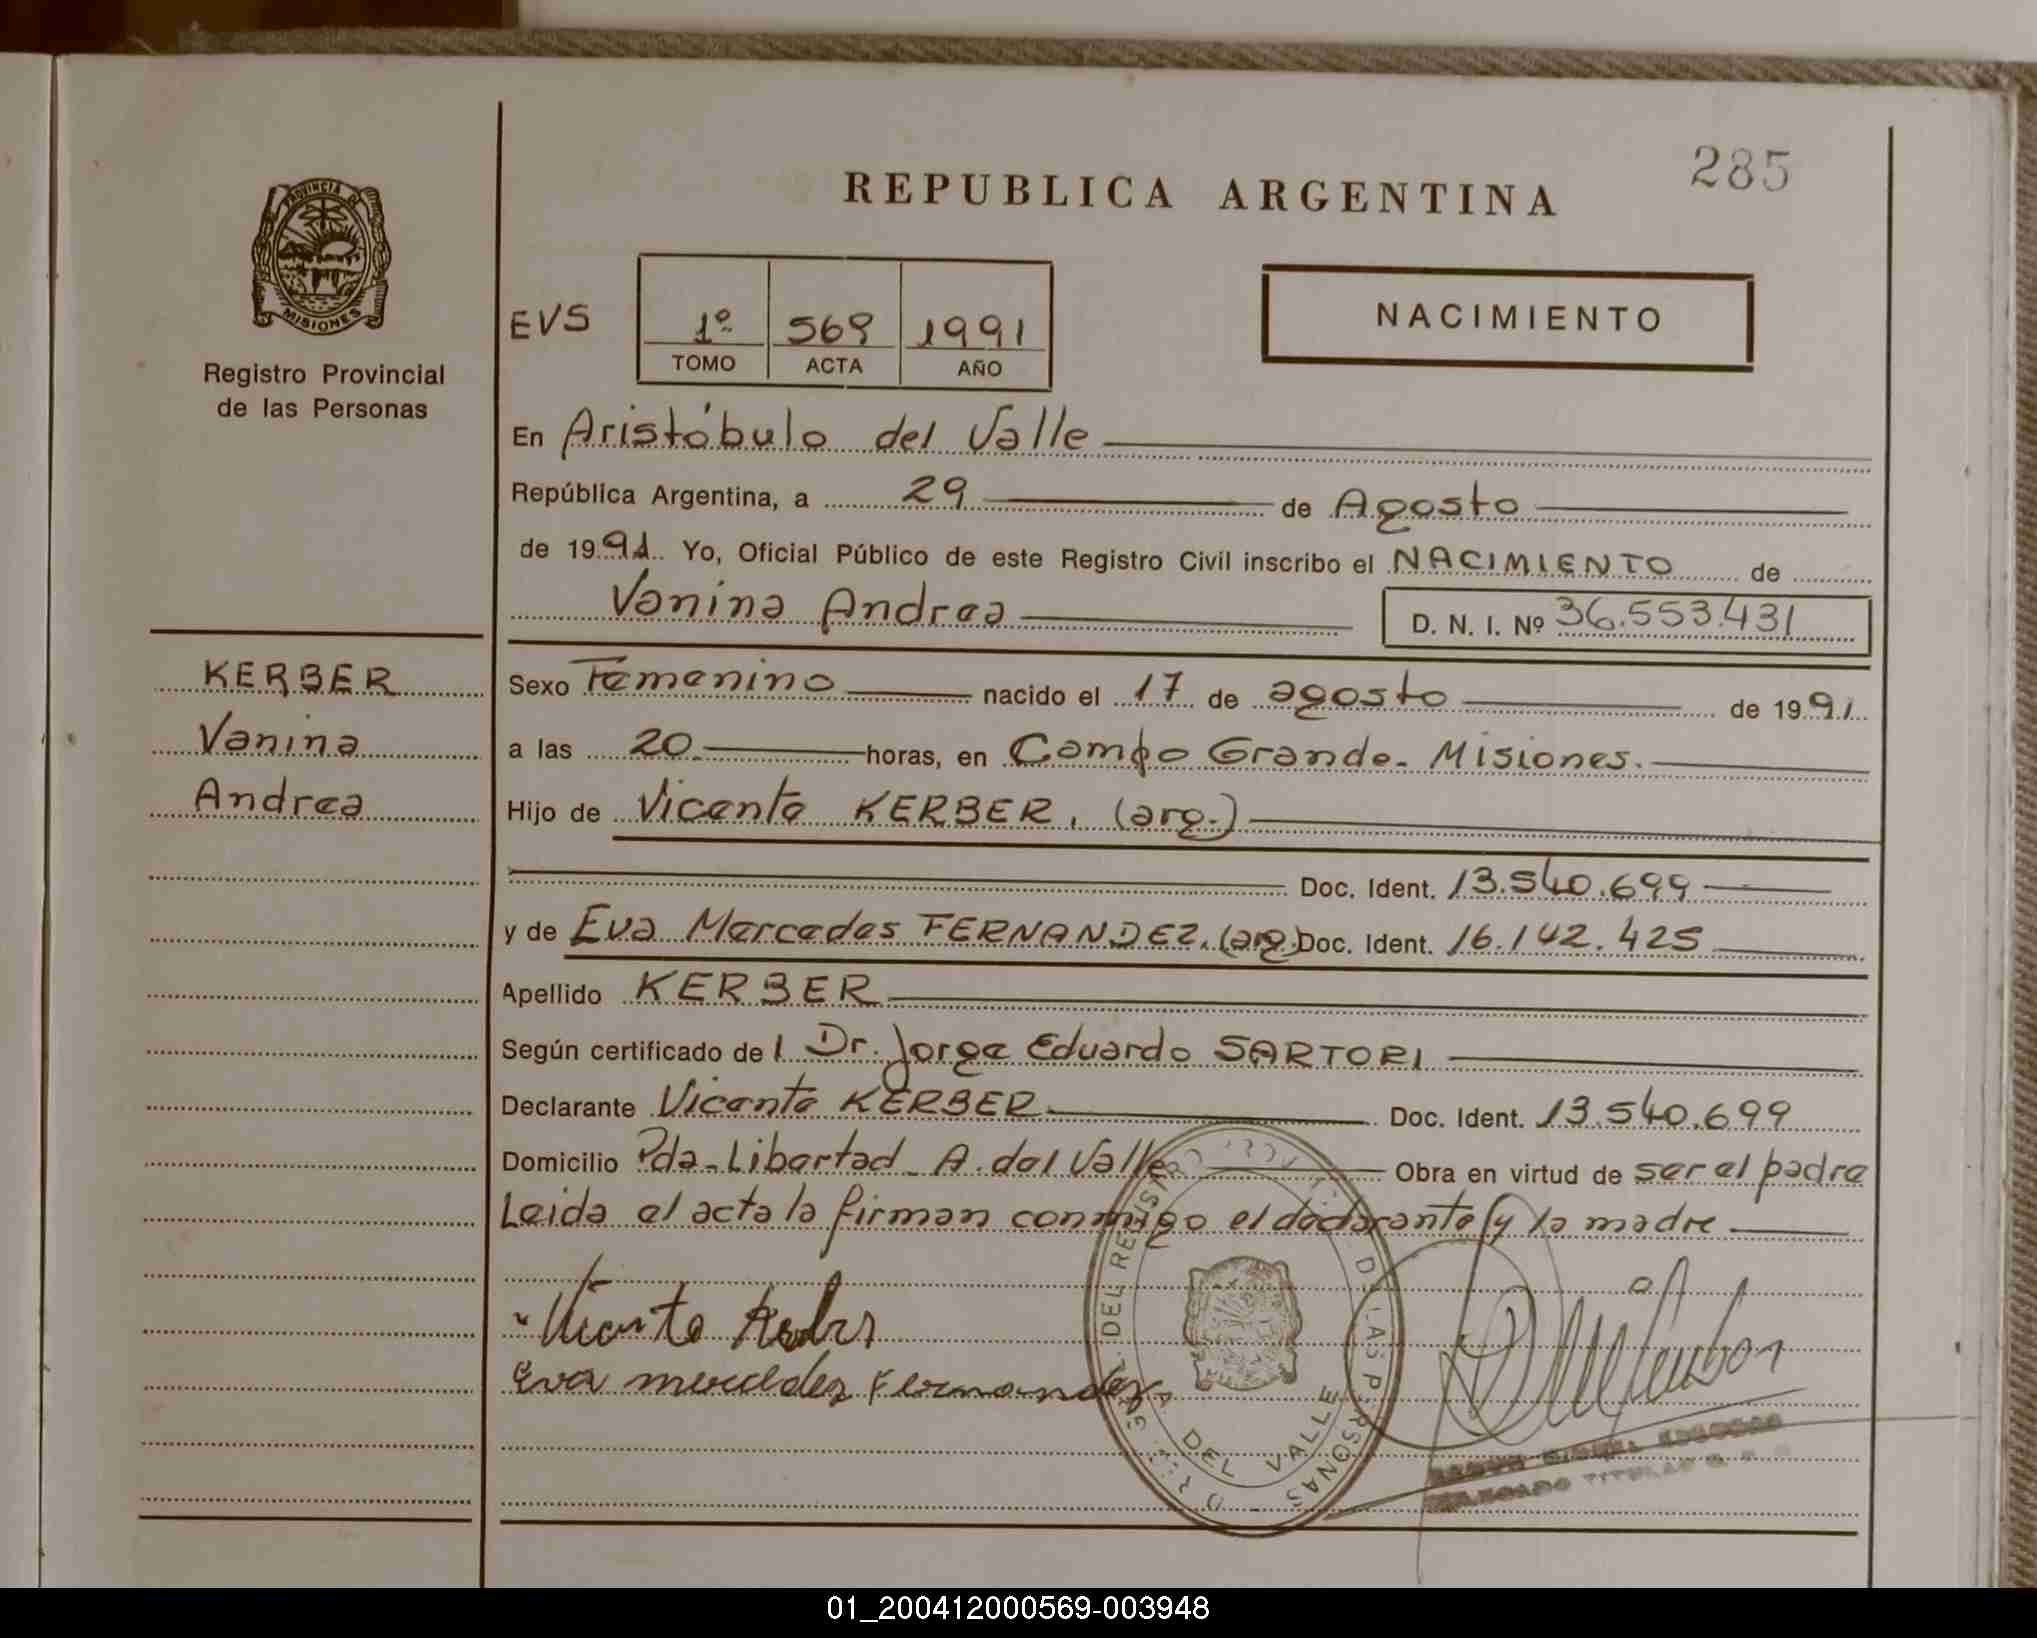 285
REPUBLICA ARGENTINA
PROVINCIA DE
MISIONES
Registro Provincial
de las Personas
EVS
1º 569 1991
TOMO ACTA AÑO
NACIMIENTO
En Aristóbulo del Valle
República Argentina, a 29 de Agosto
de 1991. Yo, Oficial Público de este Registro Civil inscribo el NACIMIENTO de
Vanina Andrea D. N. I. Nº 36.553.431
KERBER
Vanina
Andrea
Sexo Femenino nacido el 17 de agosto de 1991.
a las 20 horas, en Campo Grande. Misiones.
Hijo de Vicente KERBER, (arg.)
Doc. Ident. 13.540.699
y de Eva Mercedes FERNANDEZ, (arg.) Doc. Ident. 16.142.425
Apellido KERBER
Según certificado del Dr. Jorge Eduardo SARTORI
Declarante Vicente KERBER Doc. Ident. 13.540.699
Domicilio Pda. Libertad A. del Valle Obra en virtud de ser el padre
Leida el acta la firman conmigo el declarante y la madre
Vicente Kerber
Eva mercedes Fernandez
DEL REGISTRO PROV. DE LAS PERSONAS
A. DEL VALLE
TITULAR
01_200412000569-003948